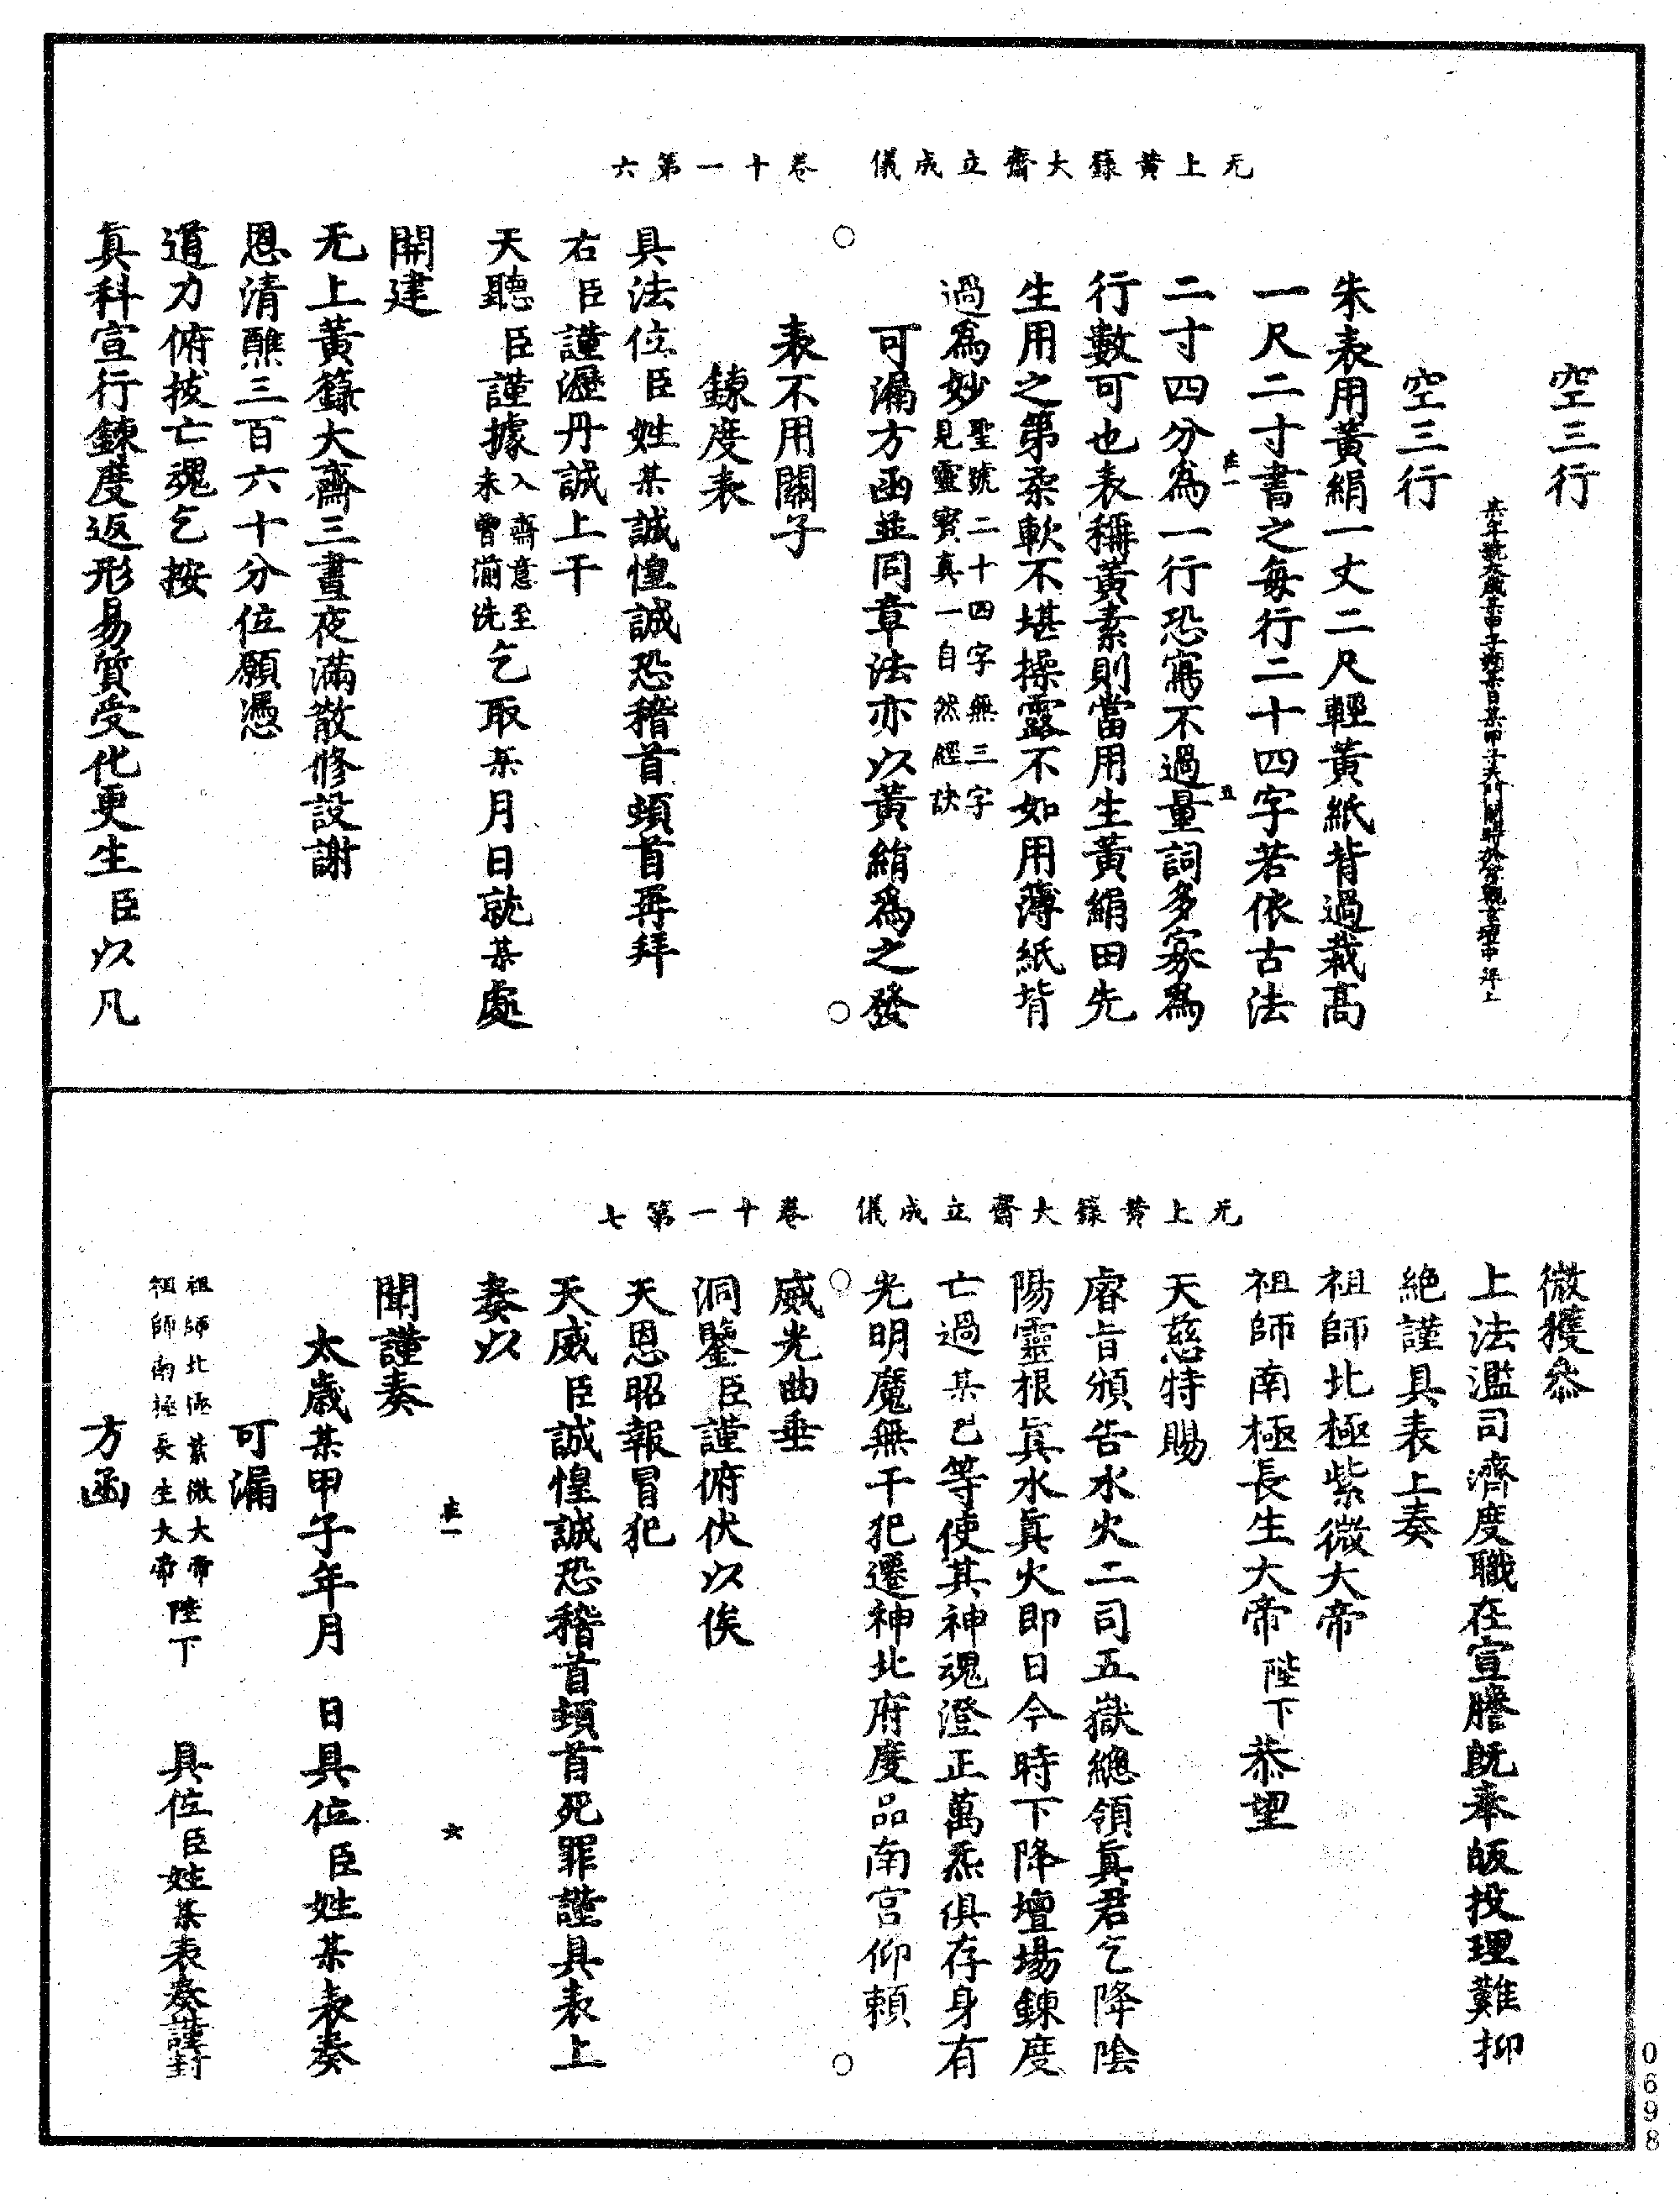 无上黃籙大齋立成儀　卷十一第六
空三行
某年號太歲某甲子幾某日某甲子天門開時於某觀玄壇中拜上
空三行
朱表用黃絹一丈二尺輕黃紙背過裁高
一尺二寸書之每行二十四字若依古法
二寸四分為一行恐寫不過量詞多寡為
行數可也表稱黃素則當用生黃絹田先
生用之第柔軟不堪操露不如用薄紙背
過為妙聖號二十四字無三字
見靈寶真一自然經訣
可漏方函並同章法亦以黃絹為之發
表不用關子
鍊度表
具法位臣姓某誠惶誠恐稽首頓首再拜
右臣謹瀝丹誠上干
天聽臣謹據入齋意至
未曾湔洗乞取某月日就某處
開建
无上黃籙大齋三晝夜滿散修設謝
恩清醮三百六十分位願憑
道力俯拔亡魂乞按
真科宣行鍊度返形易質受化更生臣以凡
无上黃籙大齋立成儀　卷十一第七
微獲叅
上法濫司濟度職在宣謄既奉皈投理難抑
絕謹具表上奏
祖師北極紫微大帝
祖師南極長生大帝陛下恭望
天慈特賜
睿旨頒告水火二司五嶽總領真君乞降陰
陽靈根真水真火即日今時下降壇場鍊度
亡過某已等使其神魂澄正萬炁俱存身有
光明魔無干犯遷神北府度品南宮仰賴
威光曲垂
洞鑒臣謹俯伏以俟
天恩昭報冒犯
天威臣誠惶誠恐稽首頓首死罪謹具表上
奏以
聞謹奏
太歲某甲子年月　日具位臣姓某表奏
可漏
祖師北極紫微大帝
祖師南極長生大帝陛下　具位臣姓某表奏謹封
方函
0698